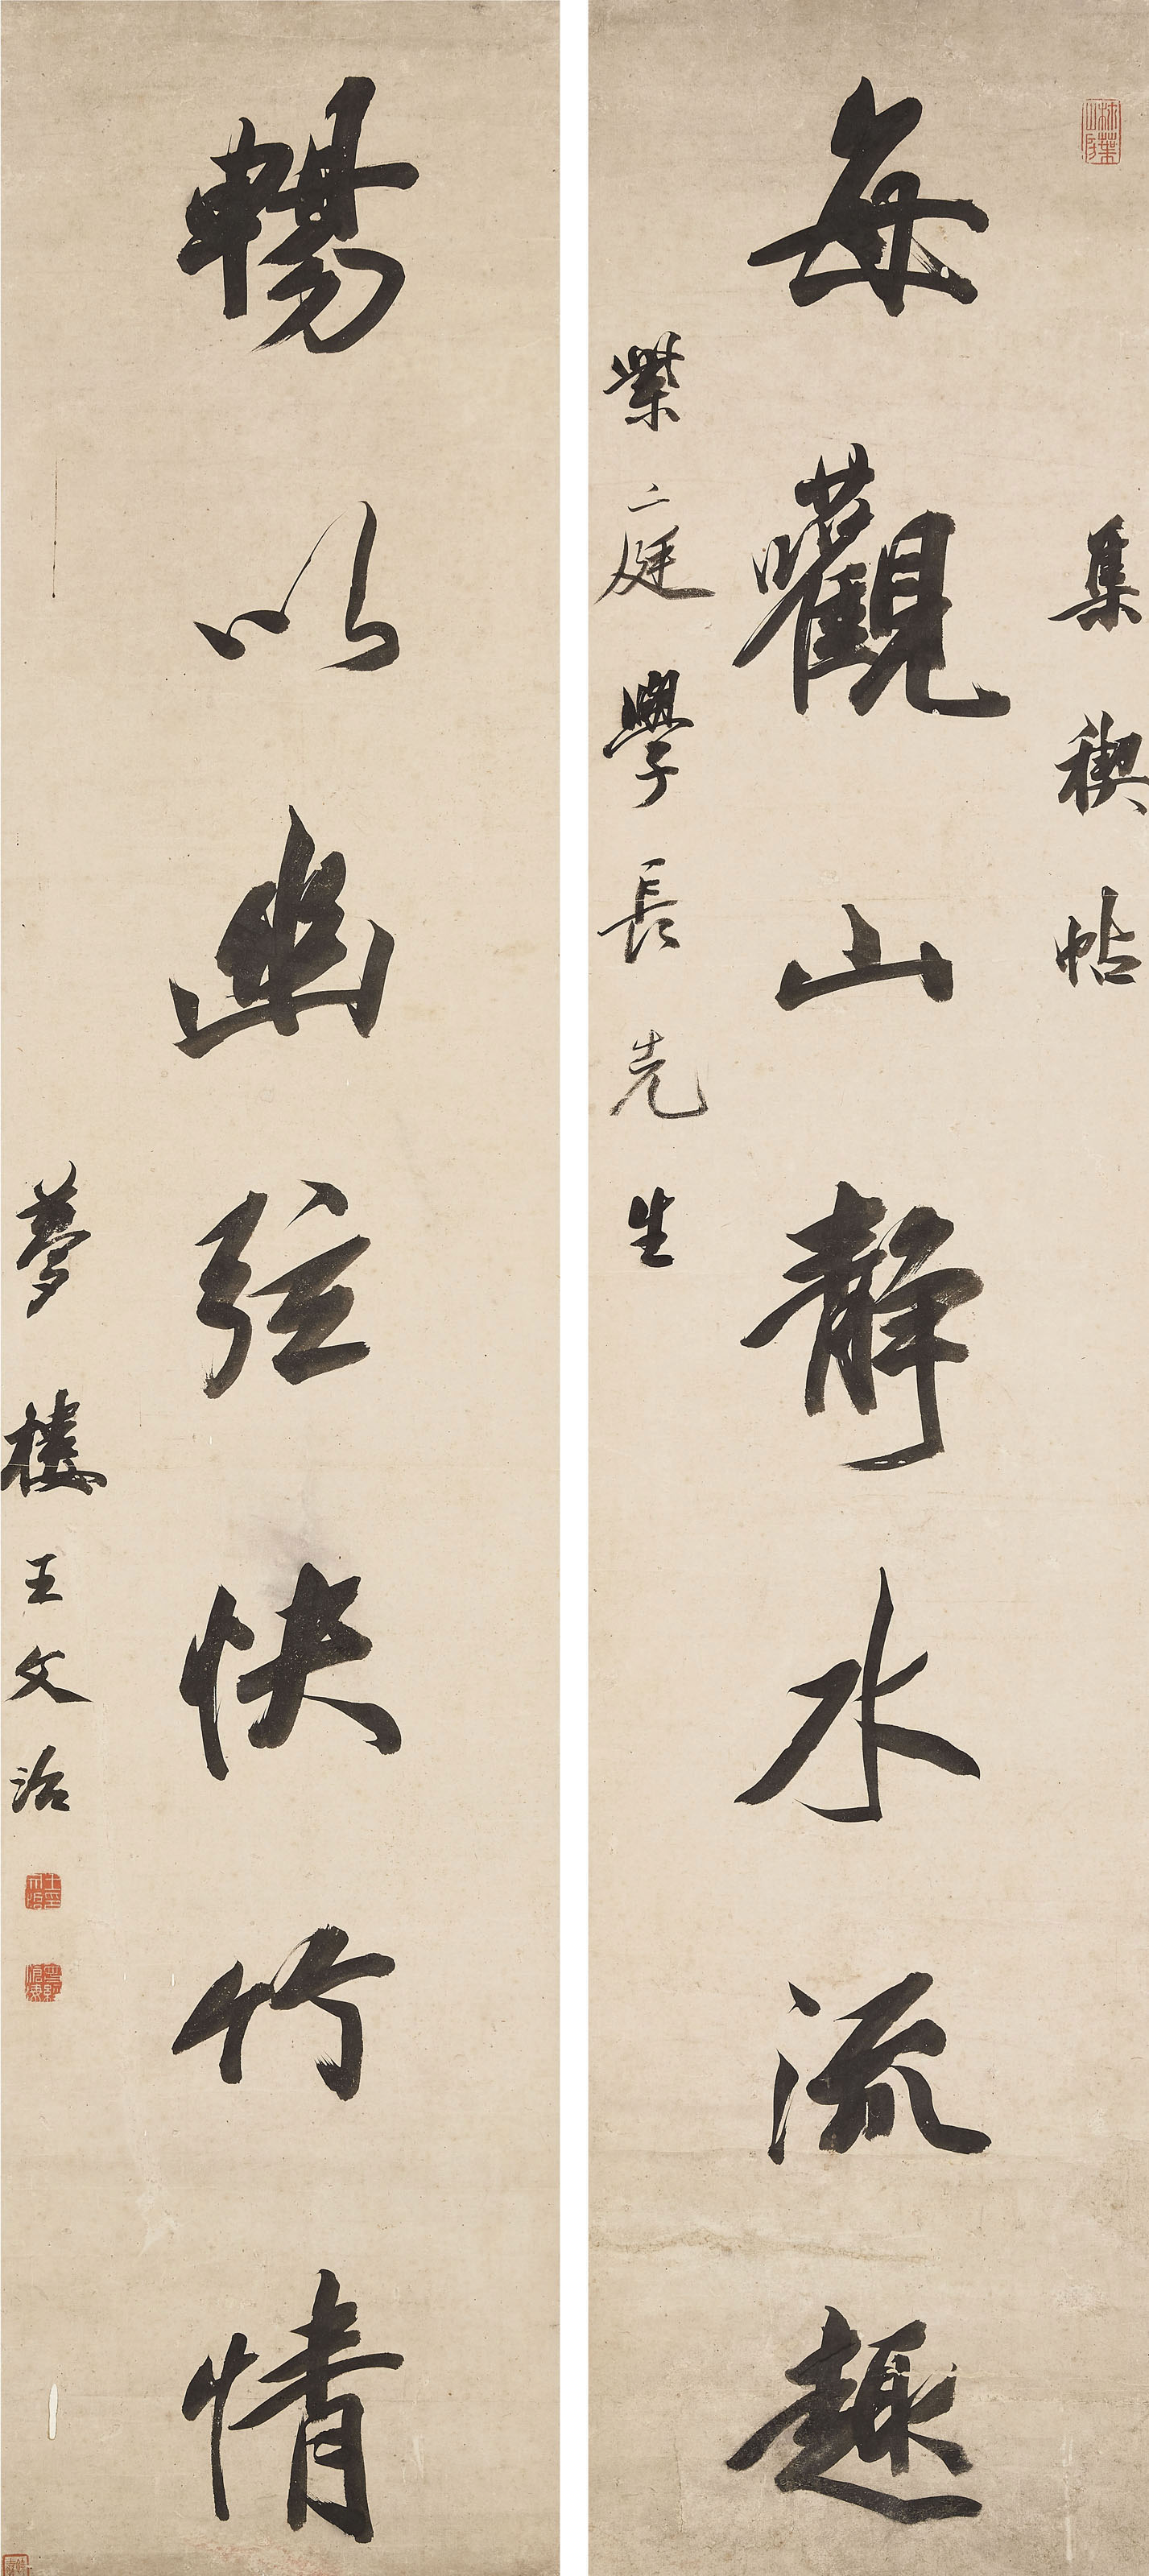 集稧帖
每觀山靜水流趣
紫庭學長先生
暢以幽弦快竹情
夢樓王文治